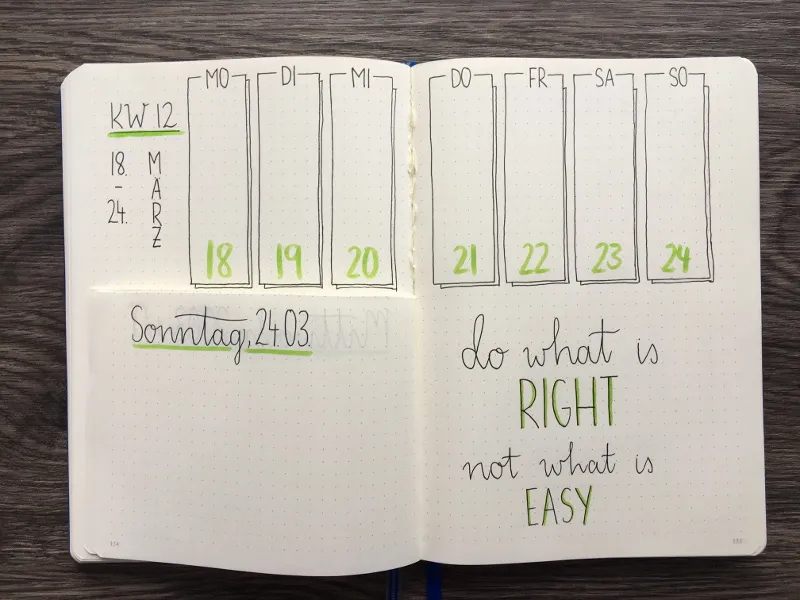 MO DI MI DO FR SA SO
KW 12
18. MÄRZ
-
24.
18 19 20 21 22 23 24
Sonntag, 24.03.
do what is
RIGHT
not what is
EASY